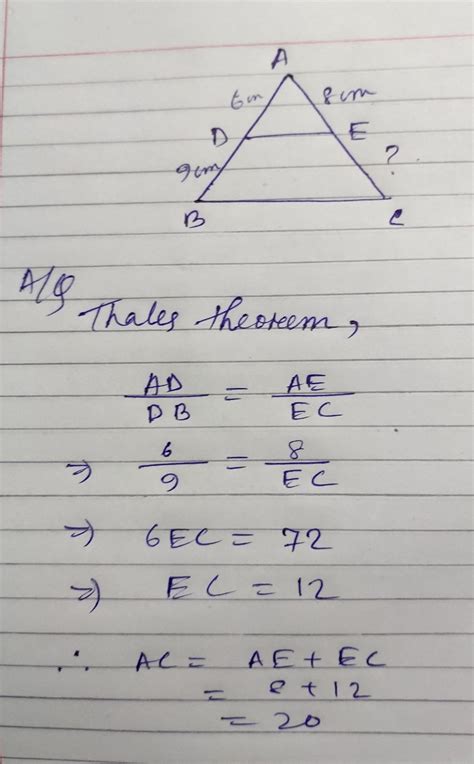 A
6cm 8cm
D E
9cm ?
B C
A/Q
Thales theorem,
AD/DB = AE/EC
⇒ 6/9 = 8/EC
⇒ 6EC = 72
⇒ EC = 12
∴ AC = AE + EC
= 8 + 12
= 20